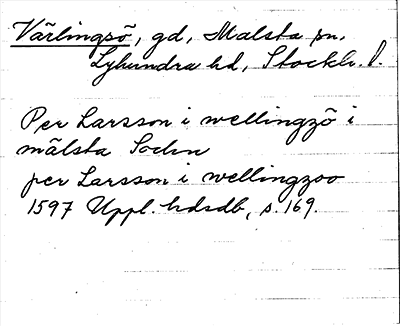 Värlingsö, gd, Malsta sn,
Lyhundra hd, Stockh. l.
Per Larsson i wellingzö i
mälsta Sockn
per Larsson i wellingzoo
1597 Uppl. hdsdb, s. 169.